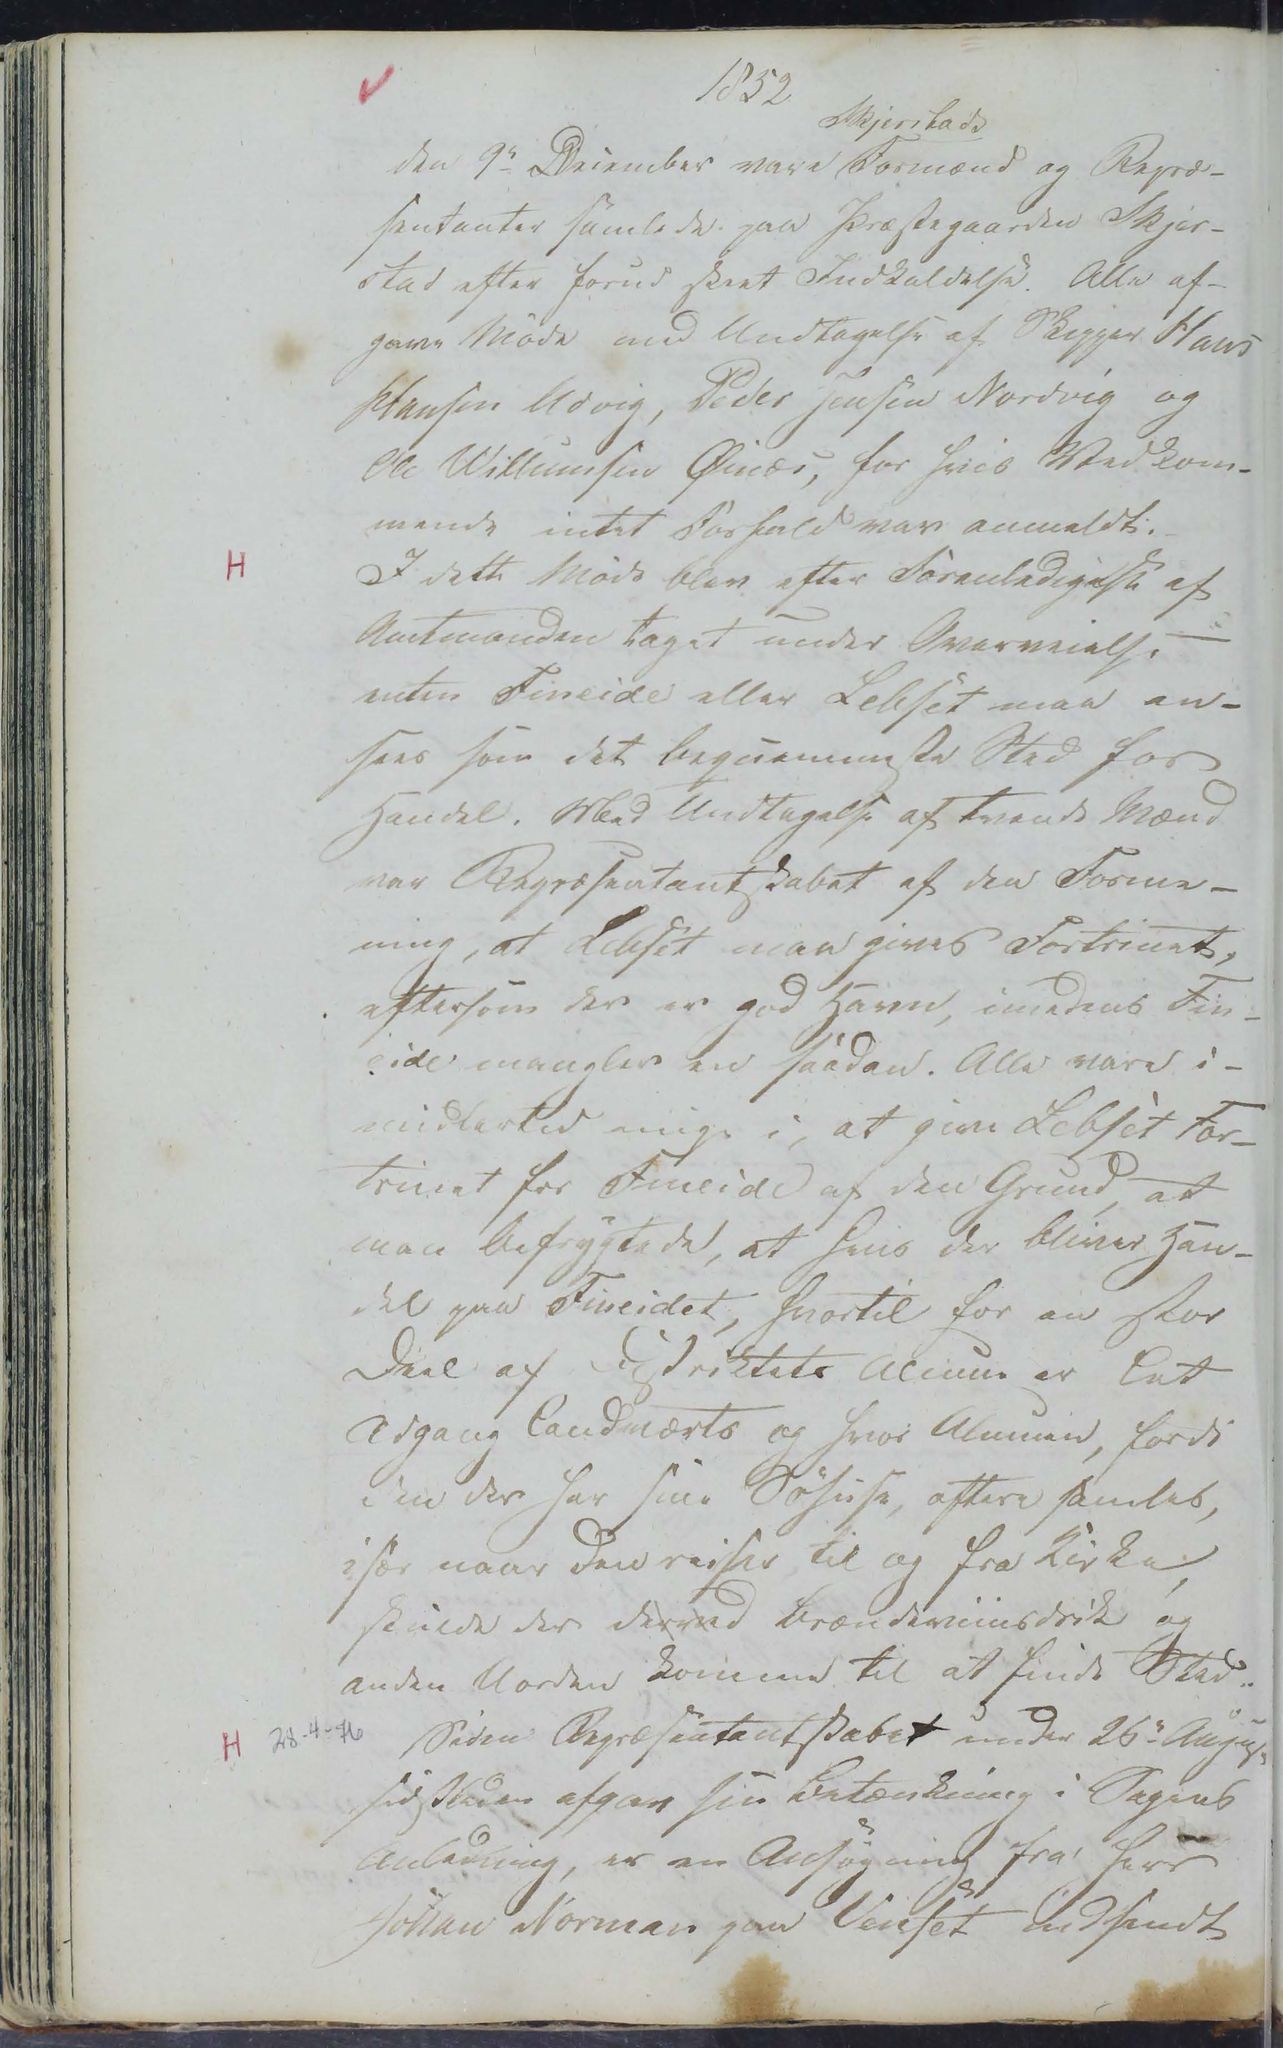 1852
Skjerstads
den 9n December vare Formænd og Repræ-
sentanter samlede paa Præstegaarden Skjer-
stad efter forud skeet Indkaldelse. Alle af-
gave Møde med Undtagelse af Skipper Hans
Hansen Udvig, Peder Jensen Nordvig og
Ole Willumsen Øines, for hvis Vedkom-
mende intet Forfald var anmeldt.
H
I dette Møde blev efter Foranledigelse af
Amtmanden taget under Overveielse
enten Fineide eller Lebset maa an-
sees som det beqvemmeste Sted for
Handel. Med Undtagelse af tvende Mænd
var Repræsentantskabet af den Forme-
ning, at Lebset maa gives Fortrinet,
eftersom der er god Havn, imedens Fin-
eide mangler en saadan. Alle vare i-
midlertid enige i, at give Lebset For-
trinet for Fineide af den Grund, at
man befrygtede, at hvis der bliver Han-
del paa Fineidet, hvortil for en stor
Deel af Distriktets Almue er let
Adgang landværts og hvor Almuen, fordi
den der har sine Søhuse, oftere samles,
især naar den reiser til og fra Kirke,
skulde der derved Brændeviinsdrik og
anden Uorden komme til at finde Sted.
H 28-4-76
Siden Repræsentantskabet under 26n August
sidstleden afgav sin Betænkning i Sagens
Anledning, er en Ansøgning fra Herr
Johan Norman paa Venset indsendt